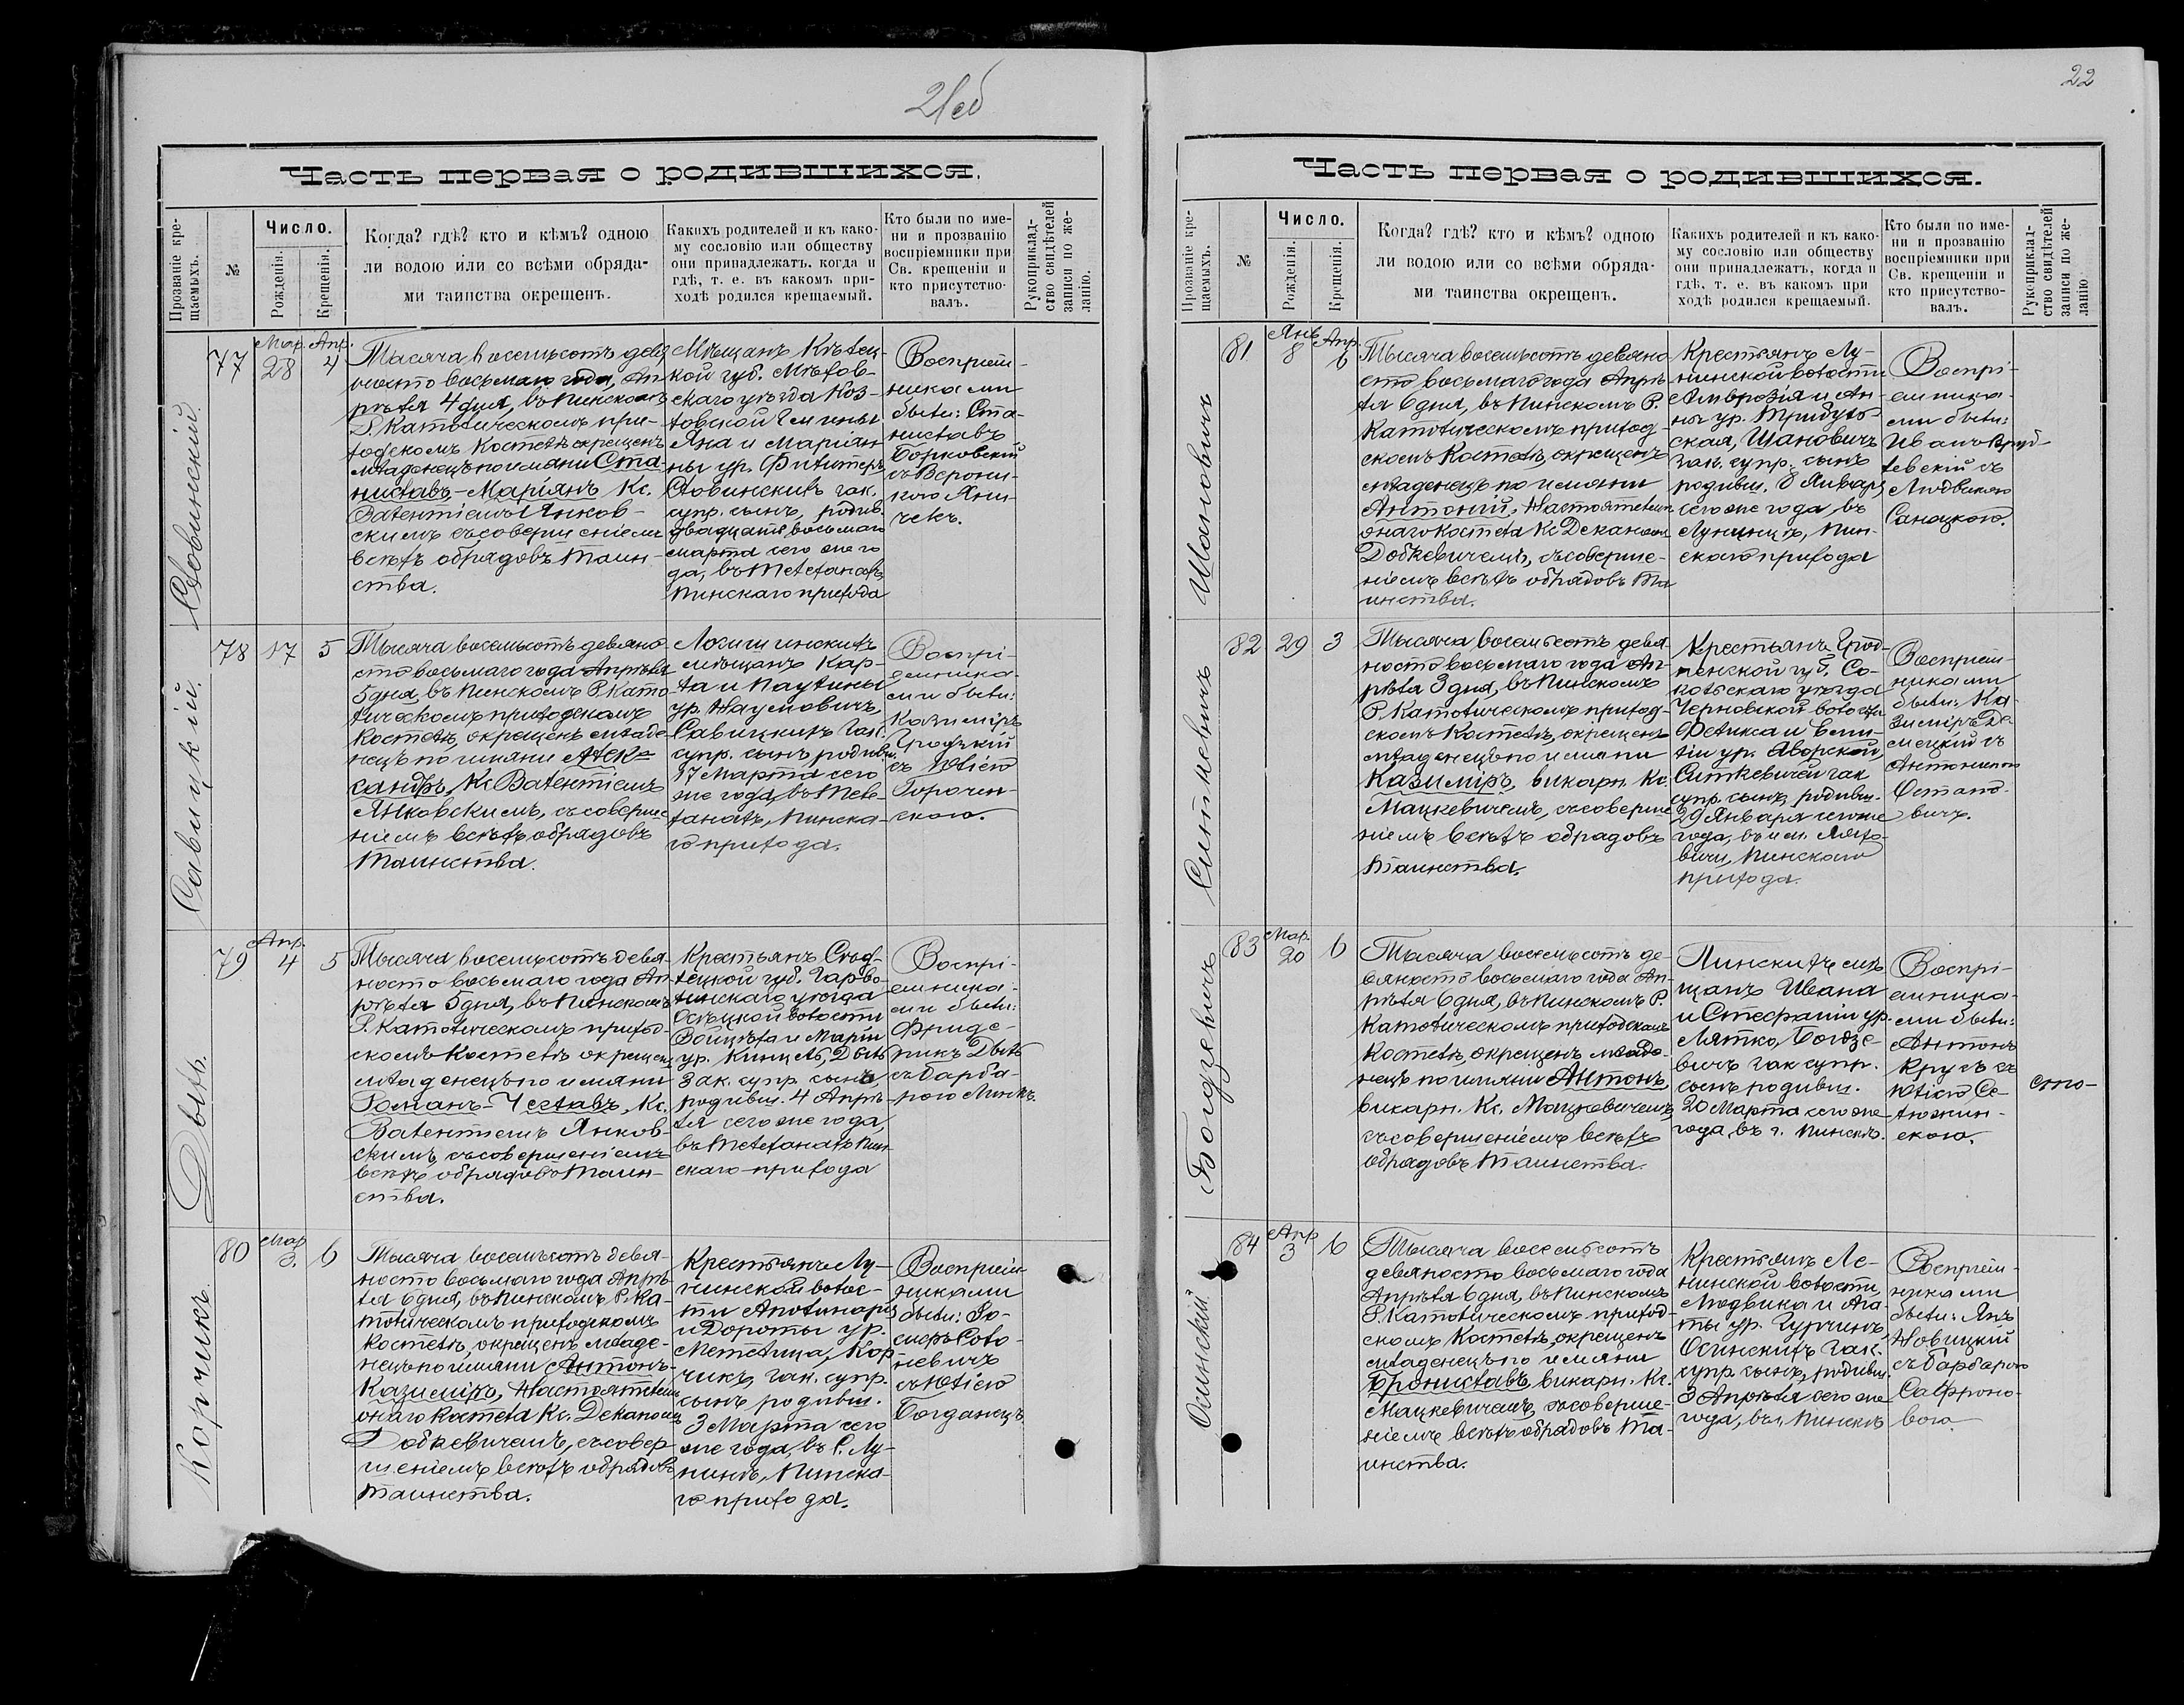 21об
Часть первая о родившихся.
Прозваніе кре-
щаемыхъ.
№
Число.
Рожденія.
Крещенія.
Когда? гдѣ? кто и кѣмъ? одною
ли водою или со всѣми обряда-
ми таинства окрещенъ.
Какихъ родителей и къ како-
му сословію или обществу
они принадлежатъ. когда и
гдѣ, т. е. въ какомъ при-
ходѣ родился крещаемый.
Кто были по име-
ни и прозванію
воспріемники при
Св. крещеніи и
кто присутство-
валъ.
Рукоприклад-
ство свидѣтелей
записи по же-
ланію.
Словинскій.
77
Мар.
28
Апр.
4
Тысяча восемьсотъ девя
носто восьмаго года, Ап
рѣля 4 дня, въ Пинскомъ
Р. Католическомъ при-
ходскомъ Костелѣ окрещенъ
младенецъ по имяни Ста
ниславъ-Маріянъ Кс.
Валентіемъ Янков-
скимъ съ совершеніемъ
всѣхъ обрядовъ Таин-
ства.
Мѣщанъ Кѣлец-
кой губ. Мѣхов-
скаго уѣзда Коз-
ловской Гмины
Яна и Маріан
ны ур.
Словинскихъ зак.
супр. сынъ, родив.
двадцать восьмаго
марта сего же го
да, въ Телеханахъ,
Пинскаго прихода
Воспріем-
никами
были: Ста-
ниславъ
Борковскій
съ Верони-
кою Яни-
чекъ.
Савицкій.
78
17
5
Тысяча восемьсотъ девяно
сто восьмаго года Апрѣля
5 дня, въ Пинскомъ Р. Като
лическомъ приходскомъ
Костелѣ, окрещенъ младе
нецъ по имяни Алек-
сандръ, Кс. Валентіемъ
Янковскимъ, съ соверше
ніемъ всѣхъ обрядовъ
Таинства.
Логишинскихъ
мѣщанъ Кар-
ла и Паулины
ур. Наумовичъ,
Савицкихъ зак.
супр. сынъ родивш.
17 Марта сего
же года, въ Теле-
ханахъ, Пинска-
го прихода.
Воспрі-
емника-
ми были:
Казиміръ
съ Юліею
Горочен-
скою.
Дыль.
79
Апр.
4
5
Тысяча восемьсотъ девя-
носто восьмаго года Ап
рѣля 5 дня, въ Пинскомъ
Р. Католическомъ приход-
скомъ Костелѣ окрещенъ
младенецъ по имяни
Романъ-Чеславъ, Кс.
Валентіемъ Янков-
скимъ, съ совершеніемъ
всѣхъ обрядовъ Таин-
ства.
Крестьянъ Сѣд-
лецкой губ. Гарво-
линскаго уѣзда
Осѣцкой волости
Войцѣха и Маріи
ур. Кинцель, Дыль
зак. супр. сынъ,
родивш. 4 Апрѣ-
ля сего же года,
въ Телеханахъ Пин
скаго прихода
Воспрі-
емника-
ми были:
Фриде-
рикъ Дыль
съ Барба-
рою Линкъ.
Корчикъ.
80
Мар.
3.
6
Тысяча восемьсотъ девя-
носто восьмаго года Апрѣ-
ля 6 дня, въ Пинскомъ Р. Ка-
толическомъ приходскомъ
Костелѣ, окрещенъ младе-
нецъ по имяни Антонъ-
Казиміръ, Настоятелемъ
онаго Костела Кс. Деканомъ
Добкевичемъ, съ совер-
шеніемъ всѣхъ обрядовъ
Таинства.
Крестьянъ Лу-
нинской волос-
ти Аполинарія
и Дороты ур.
Метелица, Кор-
чикъ, зак. супр.
сынъ родивш.
3 Марта сего
же года, въ С. Лу-
нинѣ, Пинска-
го прихода.
Воспріем-
никами
были: Іо-
сифъ Соло-
невичъ
съ Юліею
Богданецъ.
22
Часть первая о родившихся.
Прозваніе кре-
щаемыхъ.
№
Число.
Рожденія.
Крещенія.
Когда? гдѣ? кто и кѣмъ? одною
ли водою или со всѣми обряда-
ми таинства окрещенъ.
Какихъ родителей и къ како-
му сословію или обществу
они принадлежатъ, когда и
гдѣ, т. е. въ какомъ при
ходѣ родился крещаемый.
Кто были по име-
ни и прозванію
воспріемники при
Св. крещеніи и
кто присутство-
валъ.
Рукоприклад-
ство свидѣтелей
записи по же-
ланію
Шановичъ
81
Янв.
8
Апр.
6
Тысяча восемьсотъ девяно
сто восьмаго года Апрѣ
ля 6 дня, въ Пинскомъ Р.
Католическомъ приход-
скомъ Костелѣ, окрещенъ
младенецъ по имяни
Антоній, Настоятелемъ
онаго Костела Кс. Деканомъ
Добкевичемъ, съ соверше-
ніемъ всѣхъ обрядовъ Та
инства.
Крестьянъ Лу-
нинской волости
Амврозія и Ан-
ны ур. Трибуль-
ская, Шановичъ
зак. супр. сынъ
родивш. 8 Января
сего же года въ
Лунинцѣ, Пин-
скаго прихода
Воспрі-
емника-
ми были:
Иванъ Вруб-
левскій съ
Людвикою
Саноцкою.
Ситкевичъ
82
29
3
Тысяча восемьсотъ девя-
носто восьмаго года Ап-
рѣля 3 дня, въ Пинскомъ
Р. Католическомъ приход-
скомъ Костелѣ, окрещенъ
младенецъ по имяни
Казиміръ, викарн. Кс.
Мацкевичемъ, съ соверше
ніемъ всѣхъ обрядовъ
Таинства.
Крестьянъ Грод-
ненской губ. Со-
кольскаго уѣзда
Черновской волости
Феликса и Еми-
ліи ур. Яворской,
Ситкевичей зак
супр. сынъ, родивш.
29 Января сего же
года, въ им. Ляхо-
вичи, Пинскаго
прихода.
Воспріем-
никами
были: Ка-
зиміръ До-
мецкій съ
Антониною
Остапо-
вичъ.
Богдзевичъ
83
Мар.
20
6
Тысяча восемьсотъ де-
вяносто восьмаго года Ап-
рѣля 6 дня, въ Пинскомъ Р.
Католическомъ приходскомъ
Костелѣ, окрещенъ младе-
нецъ по имяни Антонъ,
викарн. Кс. Мацкевичемъ,
съ совершеніемъ всѣхъ
обрядовъ Таинства.
Пинскихъ мѣ
щанъ Ивана
и Стефаніи ур.
Лятко, Богдзе-
вичъ зак супр.
сынъ родивш.
20 Марта сего же
года, въ г. Пинскѣ.
Воспрі-
емника-
ми были:
Антонъ
Кругъ съ
Юліею Се-
люжин-
скою.
Осинскій.
84
Апр
3
6
Тысяча восемьсотъ
девяносто восьмаго года
Апрѣля 6 дня, въ Пинскомъ
Р. Католическомъ приход-
скомъ Костелѣ, окрещенъ
младенецъ по имяни
Брониславъ викарн. Кс.
Мацкевичемъ, съ соверше-
ніемъ всѣхъ обрядовъ Та-
инства.
Крестьянъ Ле-
нинской волости,
Людвика и Ага-
ты ур. Гурчинъ,
Осинскихъ зак.
супр. сынъ, родивш.
3 Апрѣля сего же
года, въ г. Пинскѣ
Воспріем-
никами
были: Янъ
Новицкій
съ Барбарою
Сафроно-
вою